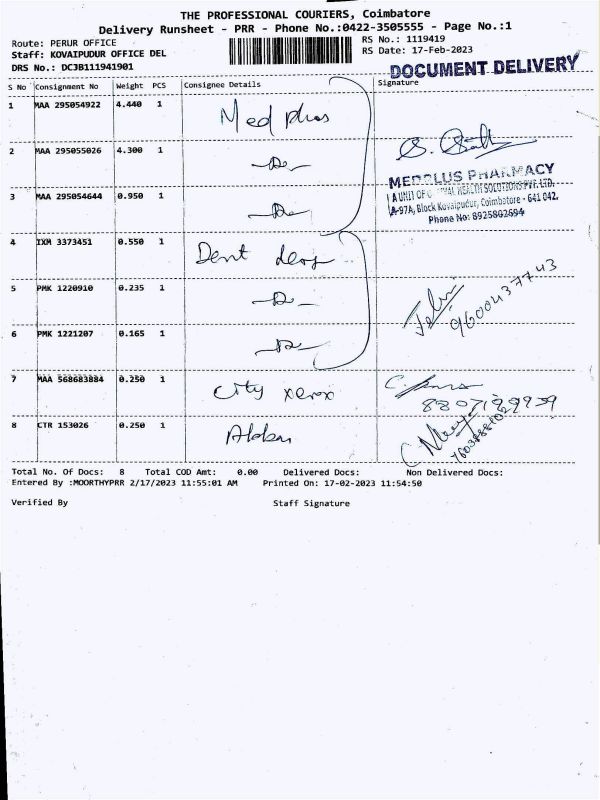 THE PROFESSIONAL COURIERS, Coimbatore
Delivery Runsheet - PRR - Phone No.:0422-3505555 - Page No.:1
Route: PERUR OFFICE
RS No.: 1119419
Staff: KOVAIPUDUR OFFICE DEL
RS Date: 17-Feb-2023
DRS No.: DC3B111941901
DOCUMENT DELIVERY
S No Consignment No Weight PCS Consignee Details Signature
1 MAA 295054922 4.440 1 Med plus
2 MAA 295055026 4.300 1 -Do-
MEDPLUS PHARMACY
3 MAA 295054644 0.950 1 -Do-
A UNIT OF HEALTH SOLUTIONS PVT. LTD.
A-97A, Block Kovaipudur, Coimbatore - 641 042.
Phone No: 8925802694
4 IXM 3373451 0.550 1 Dent
5 PMK 1220910 0.235 1 -Do-
9600437743
6 PMK 1221207 0.165 1 -Do-
7 MAA 568683884 0.250 1 City xerox
8 CTR 153026 0.250 1
Total No. Of Docs: 8 Total COD Amt: 0.00 Delivered Docs: Non Delivered Docs:
Entered By :MOORTHYPRR 2/17/2023 11:55:01 AM Printed On: 17-02-2023 11:54:50
Verified By Staff Signature